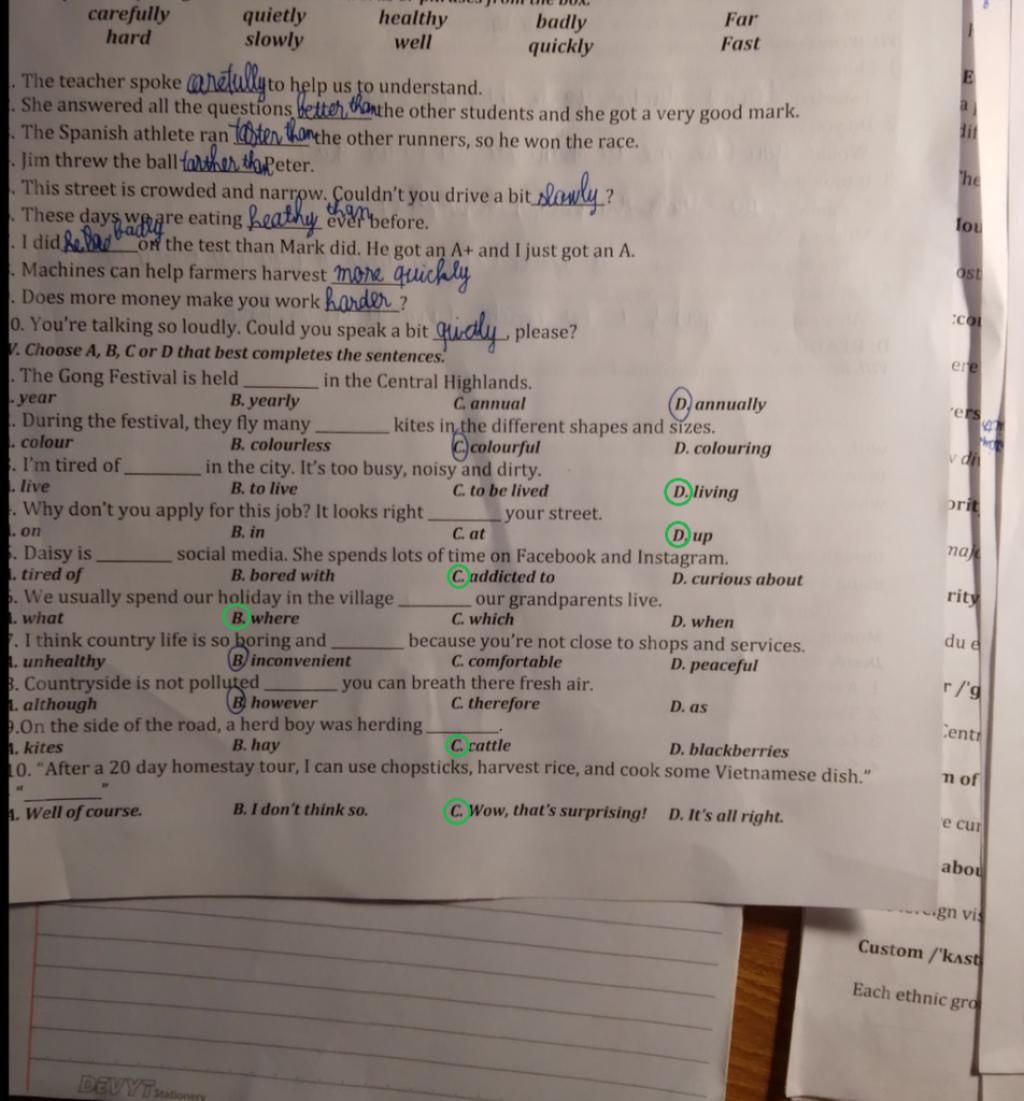 carefully quietly healthy badly Far
hard slowly well quickly Fast
. The teacher spoke carefully to help us to understand.
. She answered all the questions better than the other students and she got a very good mark.
. The Spanish athlete ran faster than the other runners, so he won the race.
. Jim threw the ball farther than Peter.
. This street is crowded and narrow. Couldn't you drive a bit slowly ?
. These days we are eating heathy than ever before.
. I did badly on the test than Mark did. He got an A+ and I just got an A.
. Machines can help farmers harvest more quickly
. Does more money make you work harder ?
0. You're talking so loudly. Could you speak a bit , please?
V. Choose A, B, C or D that best completes the sentences.
. The Gong Festival is held ________ in the Central Highlands.
. year B. yearly C. annual D. annually
. During the festival, they fly many ________ kites in the different shapes and sizes.
. colour B. colourless C. colourful D. colouring
. I'm tired of ________ in the city. It's too busy, noisy and dirty.
. live B. to live C. to be lived D. living
. Why don't you apply for this job? It looks right ________ your street.
. on B. in C. at D. up
. Daisy is ________ social media. She spends lots of time on Facebook and Instagram.
. tired of B. bored with C. addicted to D. curious about
. We usually spend our holiday in the village ________ our grandparents live.
. what B. where C. which D. when
7. I think country life is so boring and ________ because you're not close to shops and services.
. unhealthy B. inconvenient C. comfortable D. peaceful
. Countryside is not polluted ________ you can breath there fresh air.
. although B. however C. therefore D. as
9.On the side of the road, a herd boy was herding ________.
A. kites B. hay C. cattle D. blackberries
10. "After a 20 day homestay tour, I can use chopsticks, harvest rice, and cook some Vietnamese dish."
"________"
A. Well of course. B. I don't think so. C. Wow, that's surprising! D. It's all right.
DEVYT Stationery
Custom /'kʌst
Each ethnic gro